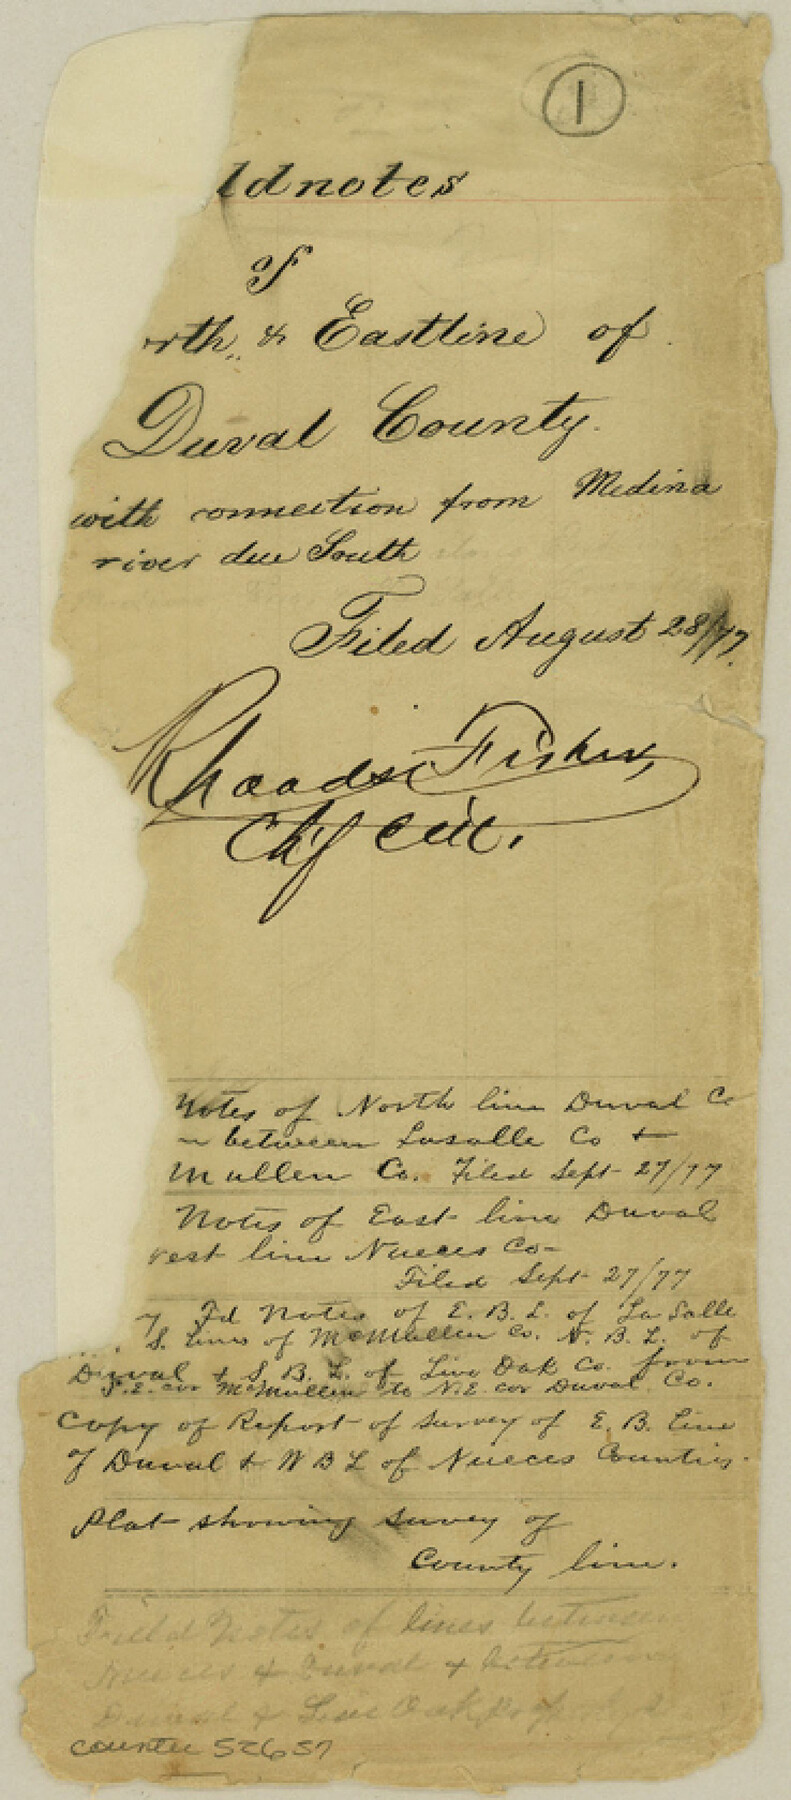 1
ldnotes
of
rth & Eastline of
Duval County.
with connection from Medina
river due South
Filed August 28/77.
Rhoads Fisher,
Chf Clk.
Notes of North line Duval Co
between Lasalle Co &
Mullen Co. Filed Sept 27/77
Notes of East line Duval
west line Nueces Co-
Filed Sept 27/77
y Fd Notes of E. B. L. of La Salle
S. lines of McMullen Co. N. B. L. of
Duval & S. B. L. of Live Oak Co. from
S.E. cor McMullen to N.E. cor Duval Co.
Copy of Report of Survey of E. B. Line
of Duval & W B L of Nueces Counties.
Plat showing survey of
County line.
Field Notes of lines between
Nueces & Duval & between
Duval & Live Oak
counter 52657